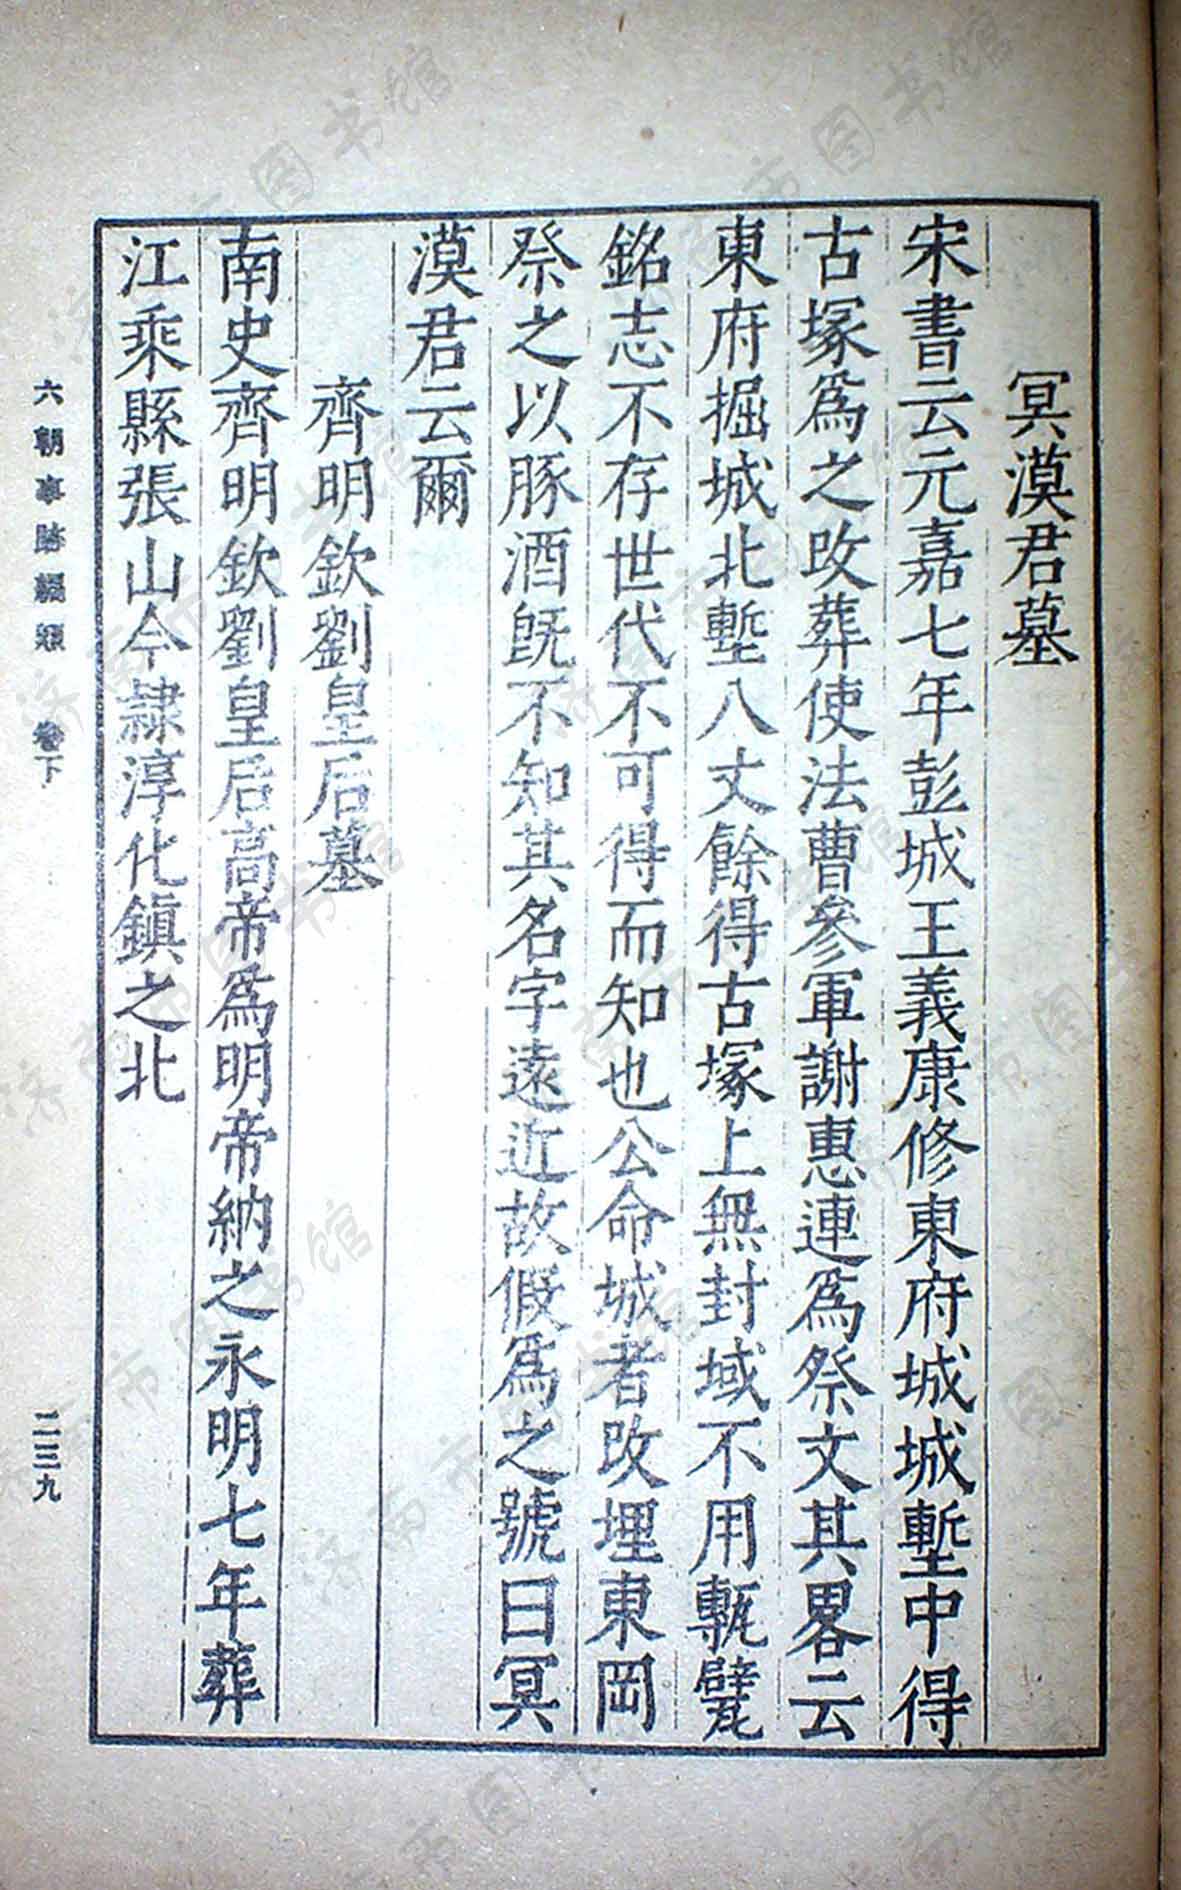 冥漠君墓
宋書云元嘉七年彭城王義康修東府城城塹中得
古塚為之改葬使法曹參軍謝惠連為祭文其畧云
東府掘城北塹八丈餘得古塚上無封域不用甎甓
銘志不存世代不可得而知也公命城者改埋東岡
祭之以豚酒旣不知其名字遠近故假為之號曰冥
漠君云爾
齊明欽劉皇后墓
南史齊明欽劉皇后高帝為明帝納之永明七年葬
江乘縣張山今隷淳化鎮之北
六朝事跡編類 卷下
二三九
济南市图书馆